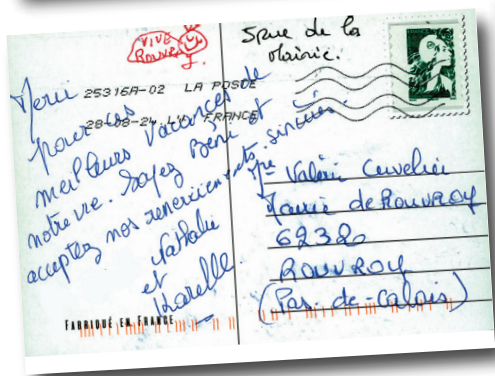 VIVE
ROUVROY
5 rue de la
Mairie.
25316A-02 LA POSTE
28-08-24 FRANCE
Merci
pour ces
meilleurs vacances de
notre vie. Soyez Béni et
acceptez nos remerciements sincères.
Nathalie
et
Karelle.
Valérie Cuvelier
Mairie de ROUVROY
62320
ROUVROY
(Pas-de-Calais)
FABRIQUÉ EN FRANCE